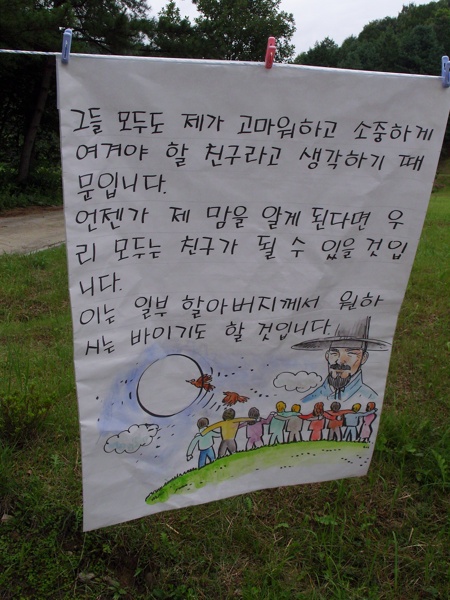 그들 모두도 제가 고마워하고 소중하게
여겨야 할 친구라고 생각하기 때
문입니다.
언젠가 제 맘을 알게 된다면 우
리 모두는 친구가 될 수 있을 것입
니다.
이는 일부 할아버지께서 원하
시는 바이기도 할 것입니다.